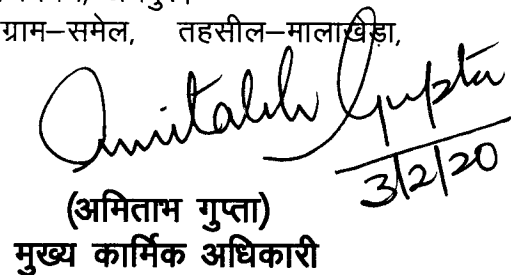 ग्राम–समेल, तहसील–मालाखेड़ा,
Amitabh Gupta
3/2/20
(अमिताभ गुप्ता)
मुख्य कार्मिक अधिकारी